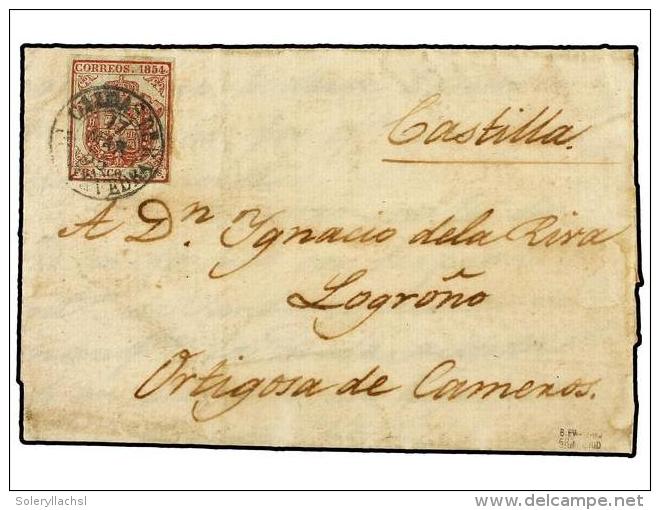 CORREOS. 1854.
CALDAS DE
17
FRANCO
Castilla.
A Dn. Ygnacio dela Riva
Logroño
Ortigosa de Cameros.
Soleryllachsl
delcampe.net